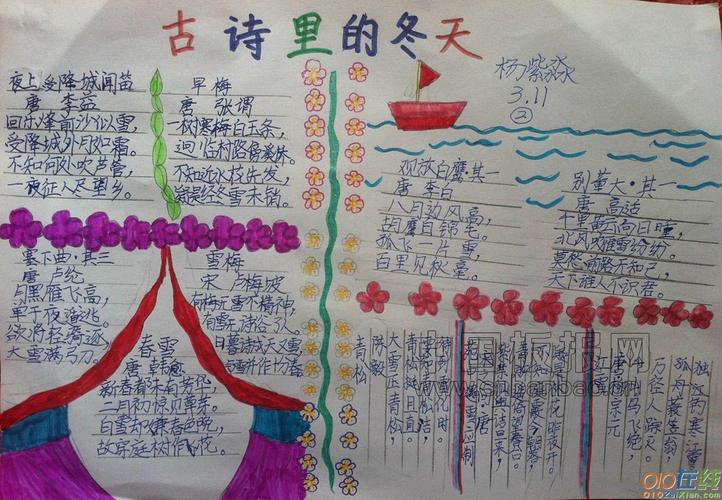 古诗里的冬天
杨紫淼
3.11
②
夜上受降城闻笛
唐 李益
回乐烽前沙似雪,
受降城外月如霜。
不知何处吹芦管,
一夜征人尽望乡。
早梅
唐 张谓
一树寒梅白玉条,
迥临村路傍溪桥。
不知近水花先发,
疑是经冬雪未销。
观放白鹰·其一
唐 李白
八月边风高,
胡鹰白锦毛。
孤飞一片雪,
百里见秋毫。
别董大·其一
唐 高适
千里黄云白日曛,
北风吹雁雪纷纷。
莫愁前路无知己,
天下谁人不识君。
塞下曲·其三
唐 卢纶
月黑雁飞高,
单于夜遁逃。
欲将轻骑逐,
大雪满弓刀。
雪梅
宋 卢梅坡
有梅无雪不精神,
有雪无诗俗了人。
日暮诗成天又雪,
春雪
唐 韩愈
新春都未有芳花,
二月初惊见草芽。
白雪却嫌春色晚,
故穿庭树作飞花。
青松
陈毅
大雪压青松,
青松挺且直。
要知松高洁,
待到雪化时。
江雪
唐 柳宗元
千山鸟飞绝,
万径人踪灭。
孤舟蓑笠翁,
独钓寒江雪。
中国板报网
010在线
010ZaiXian.com